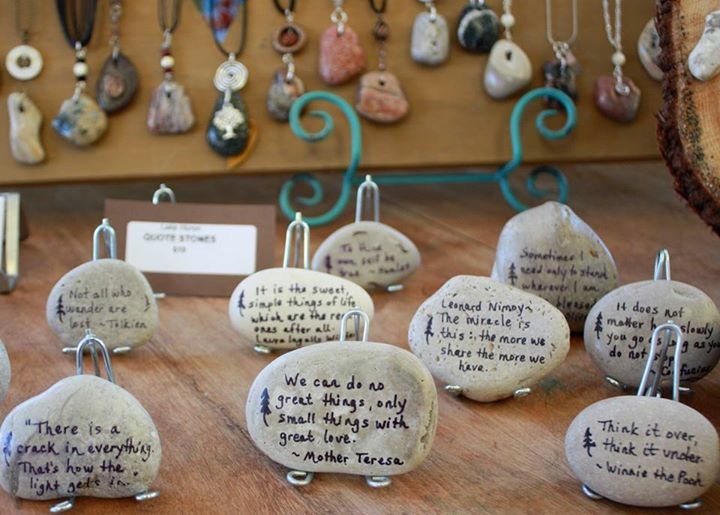 QUOTE STONES
Not all who
wander are
lost ~ Tolkien
It is the sweet,
simple things of life
which are the re
ones after all.
Laura Ingalls W
To thine
own self be
true ~
Leonard Nimoy~
The miracle is
this: the more we
share the more we
have.
Sometimes I
need only to stand
wherever I am
blessed
It does not
matter how slowly
you go as you
do not
~ Confucius
"There is a
crack in everything.
That's how the
light gets in.
We can do no
great things, only
small things with
great love.
~ Mother Teresa
Think it over,
think it under.
~ Winnie the Pooh